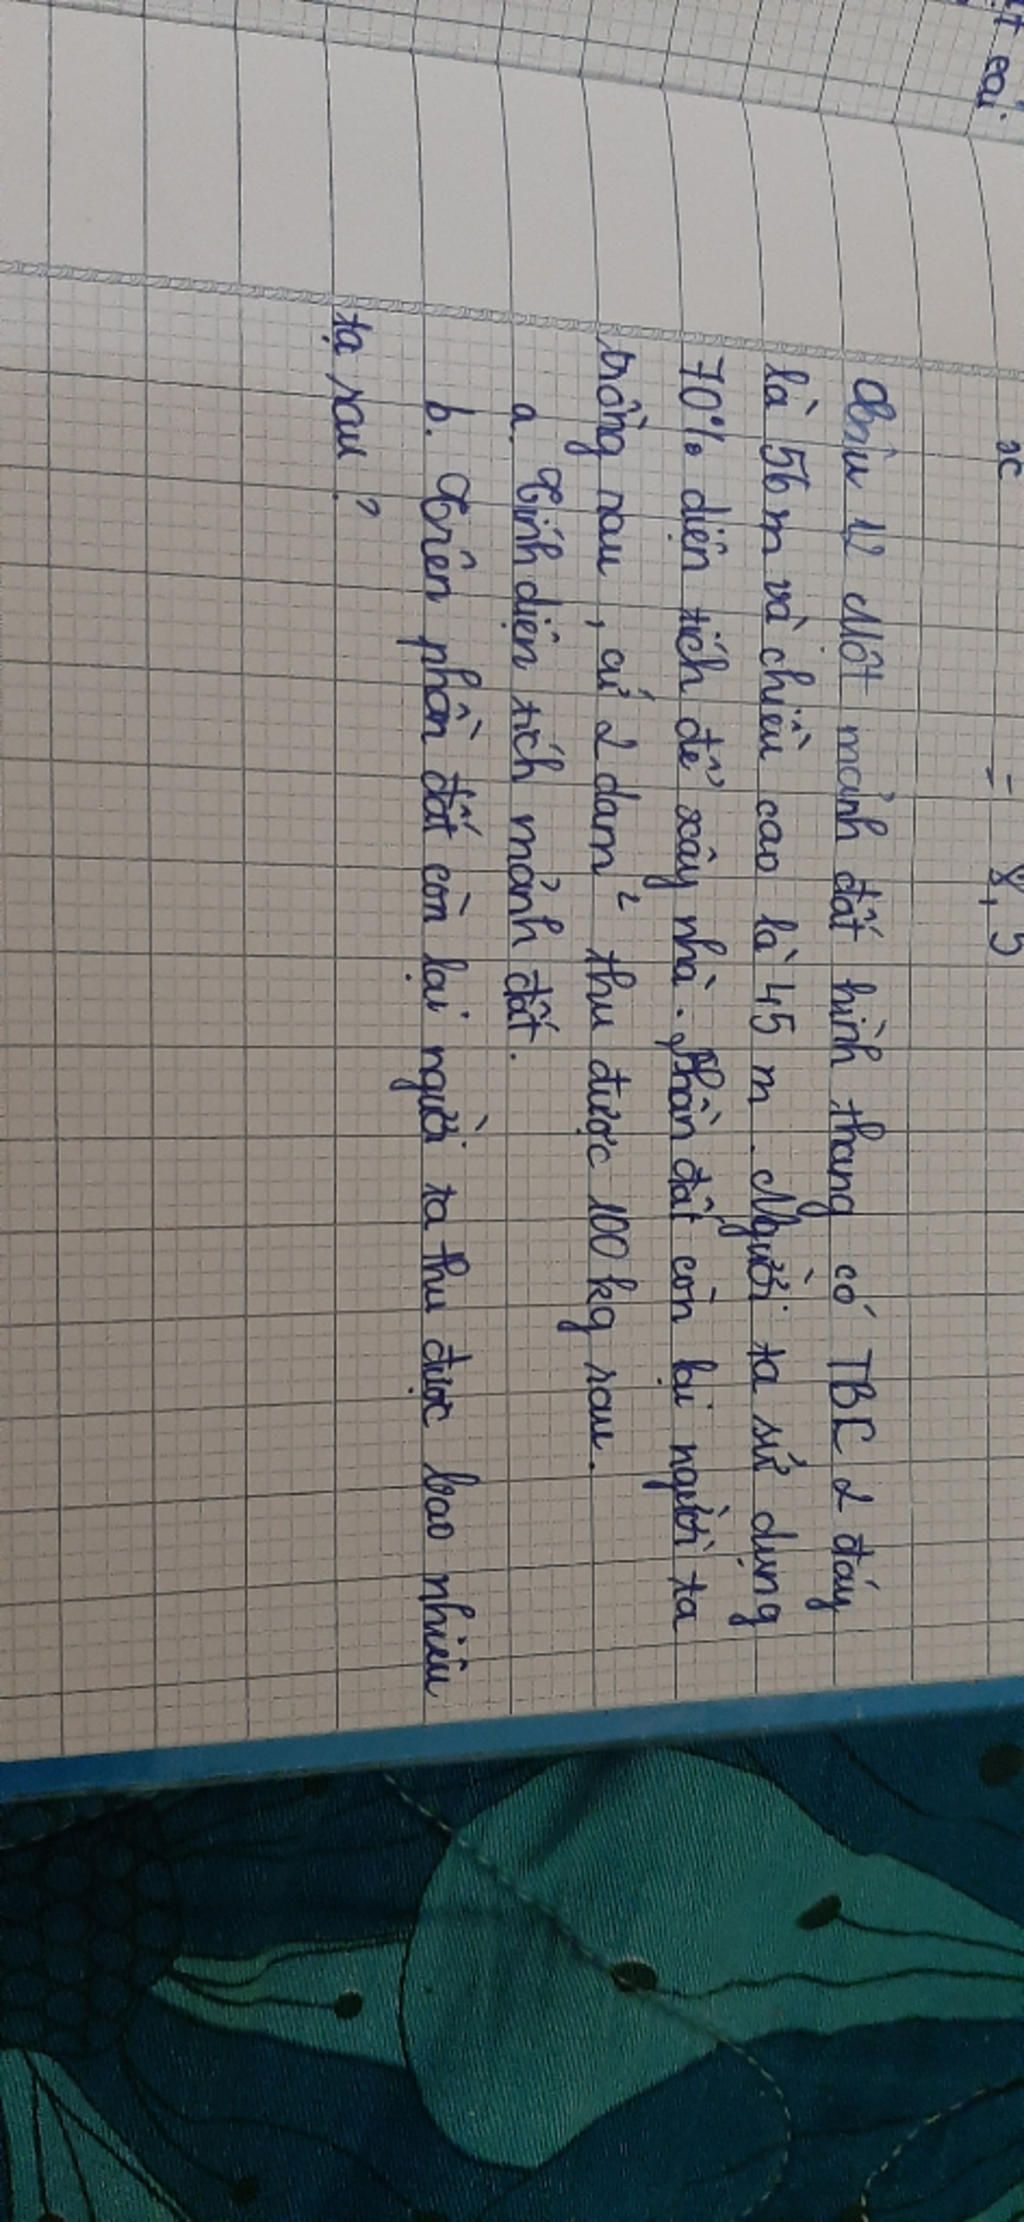 ọt cai
x = 8,5
Câu 12 Một mảnh đất hình thang có TBC 2 đáy
là 56 m và chiều cao là 45 m. Người ta sử dụng
70% diện tích để xây nhà. Phần đất còn lại người ta
trồng rau, cứ 2 dam² thu được 100 kg rau.
a. Tính diện tích mảnh đất.
b. Trên phần đất còn lại người ta thu được bao nhiêu
tạ rau?